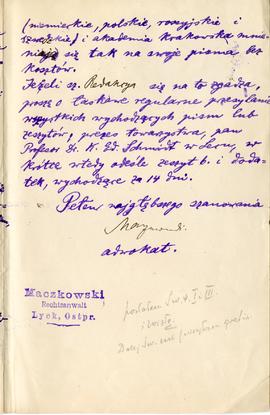 (niemieckie, polskie, rosyjskie i
szwedzkie) i akademia Krakowska
się tak na swoje pisma bez
kosztów.
Jeżeli sz. Redakcja się na to zgadza,
proszę o łaskawe regularne przesyłanie
wszystkich wychodzących pism lub
zeszytów, prezes towarzystwa, pan
Profesor Dr. K. Ed. Schmidt w Lecu, w
krótce wtedy odeśle zeszyt 6. i doda-
tek, wychodzące za 14 dni.
Pełen najgłębszego szanowania
adwokat.
Maczkowski
Rechtsanwalt
Lyck, Ostpr.
i